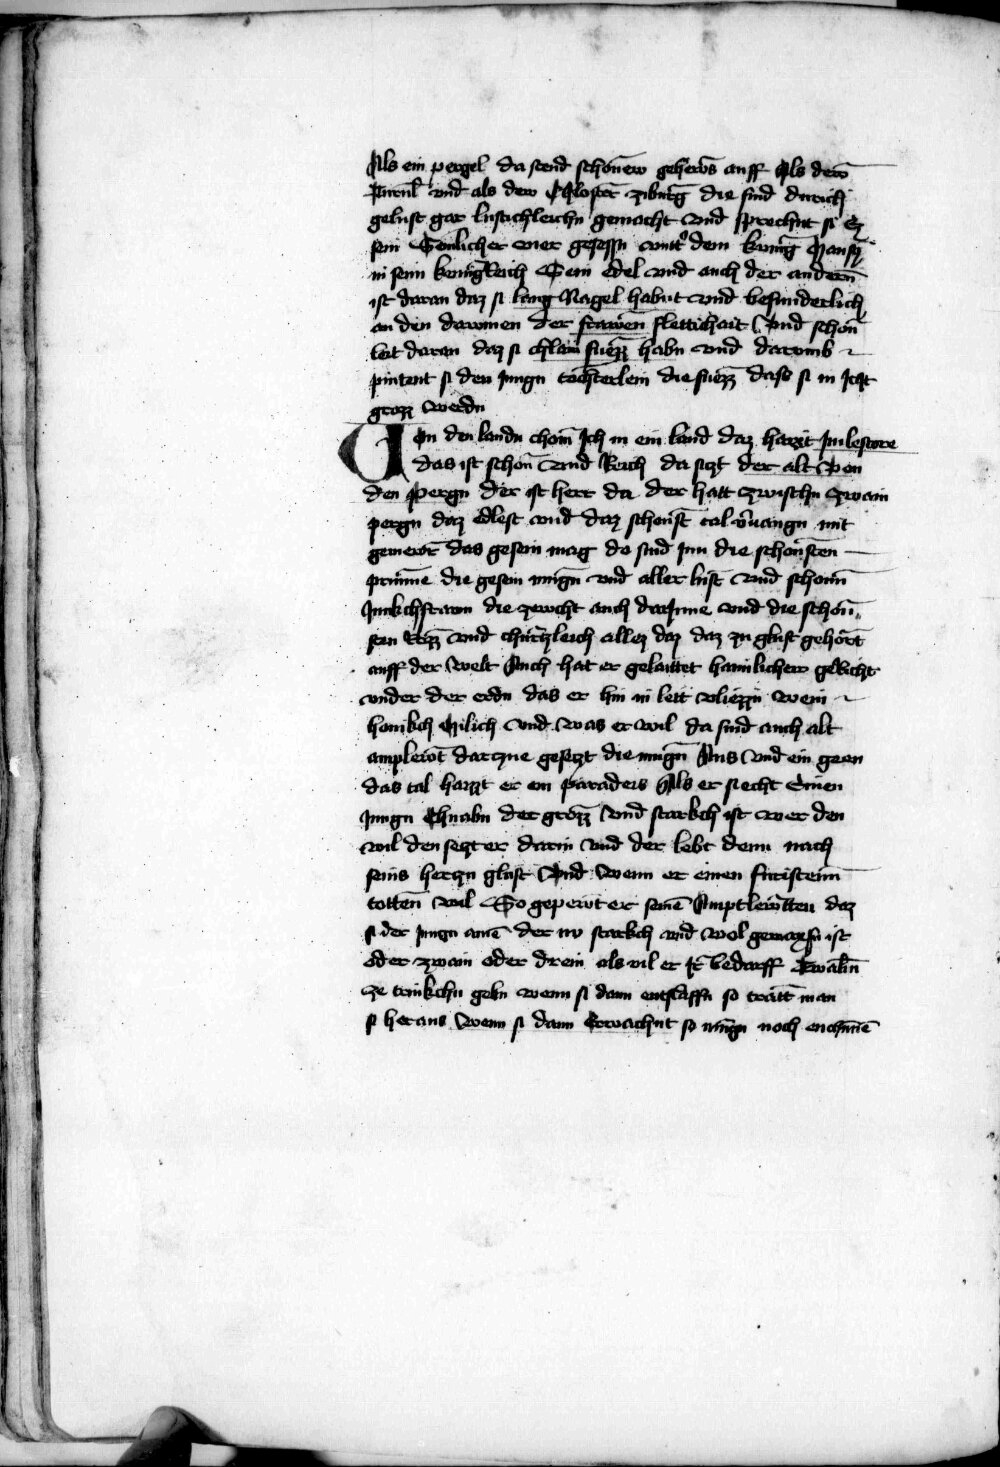 Als ein pergel da stend schonew gehews auff Als dew
Purtul und als dew Chloster ziburg die sind durich
gelust gar lustichleichn gemacht und sprechnt si Ez
sein Semlicher vier gesessn untt dem kunig Mansy
in seim kunigReich Sein edel und auch der andern
ist daran daz si lang Nagel habnt und besunderlich
an den dawmen der frawen flettichait Und schon
leit daran daz si chlain fuezz habn und darumb
pintent si den Jungn tochterlein die fuezz daso si in Icht
grozz werdn
In den landn chom Ich in ein land daz haizzt Milestore
das ist schon und Reich da siczt der alt Von
den pergn der ist herr da der hatt zwischn zwain
pergn daz edlest und daz schonst tal v̈uangn mit
gemewr das gesein mag do sind Inn die schonsten
prunne die gesein mugn und aller lust und schonn
Junkchfrawn die zewcht auch darInne und die schon
sten Rozz und churczleich allez daz daz zu glust gehort
auff der welt Auch hat er gelaittet hainlichew geRicht
under der erdn das er hin in lett vliezzn wein
honikch Milich und was er wil da sind auch alt
amplewt darczue geseczt die mugn Aus und ein geen
das tal haizzt er ein paradeis Als er siecht Einen
Jungn Chnabn der grozz Und starkch ist wer den
wil den seczt er darin und der lebt denn nach
seins herczn glust Und wenn er einen furistenn
totten wil So gepewt er seine Amptlewtten daz
si der Jungn aine der nu starkch und wol gewaxsn ist
oder zwain oder drein als vil er Ir bedarff Twalm
ze trinkchn gebn wenn si dann entslaffn so traitt man
si heraus Wenn si dann Erwachnt so mugn noch enchunne